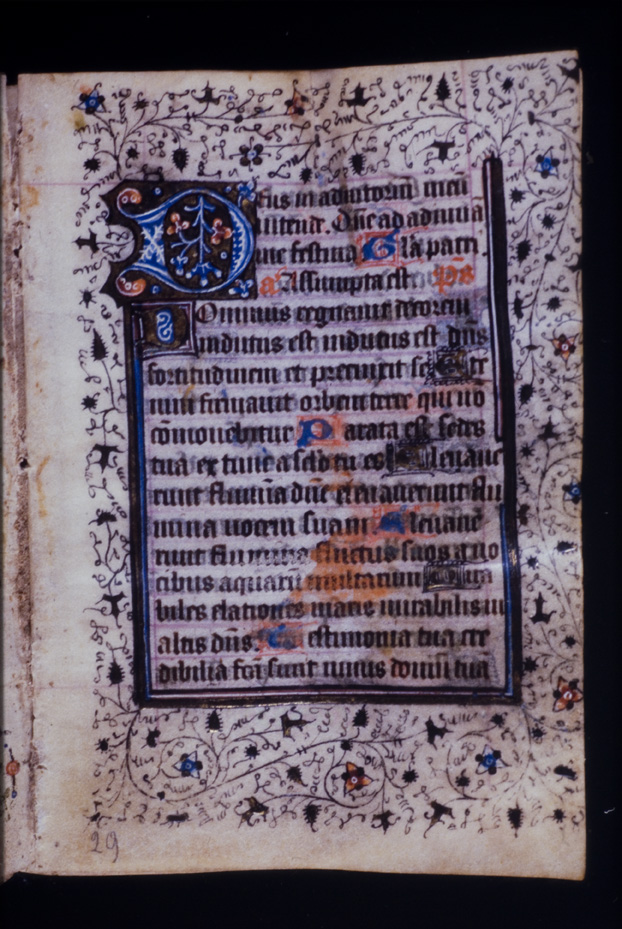 Deus in adiutoriū meū
intende. Dn̄e ad adiuuā
dū me festina Glā patri.
a Assumpta est ps
Dominus regnauit decorem
indutus est indutus est dn̄s
fortitudinem et precinxit se Et
nim firmauit orbem terre qui nō
cōmouebitur Parata est sedes
tua ex tunc a sclō tu es Eleuaue
runt flumīa dn̄e eleuauerunt flu
mina uocem suam Eleuaue
runt flumina fluctus suos a uo
cibus aquarū multarum Mira
biles elationes maris mirabilis in
altis dn̄s. Testimonia tua cre
dibilia fcā sunt nimis domū tuā
29